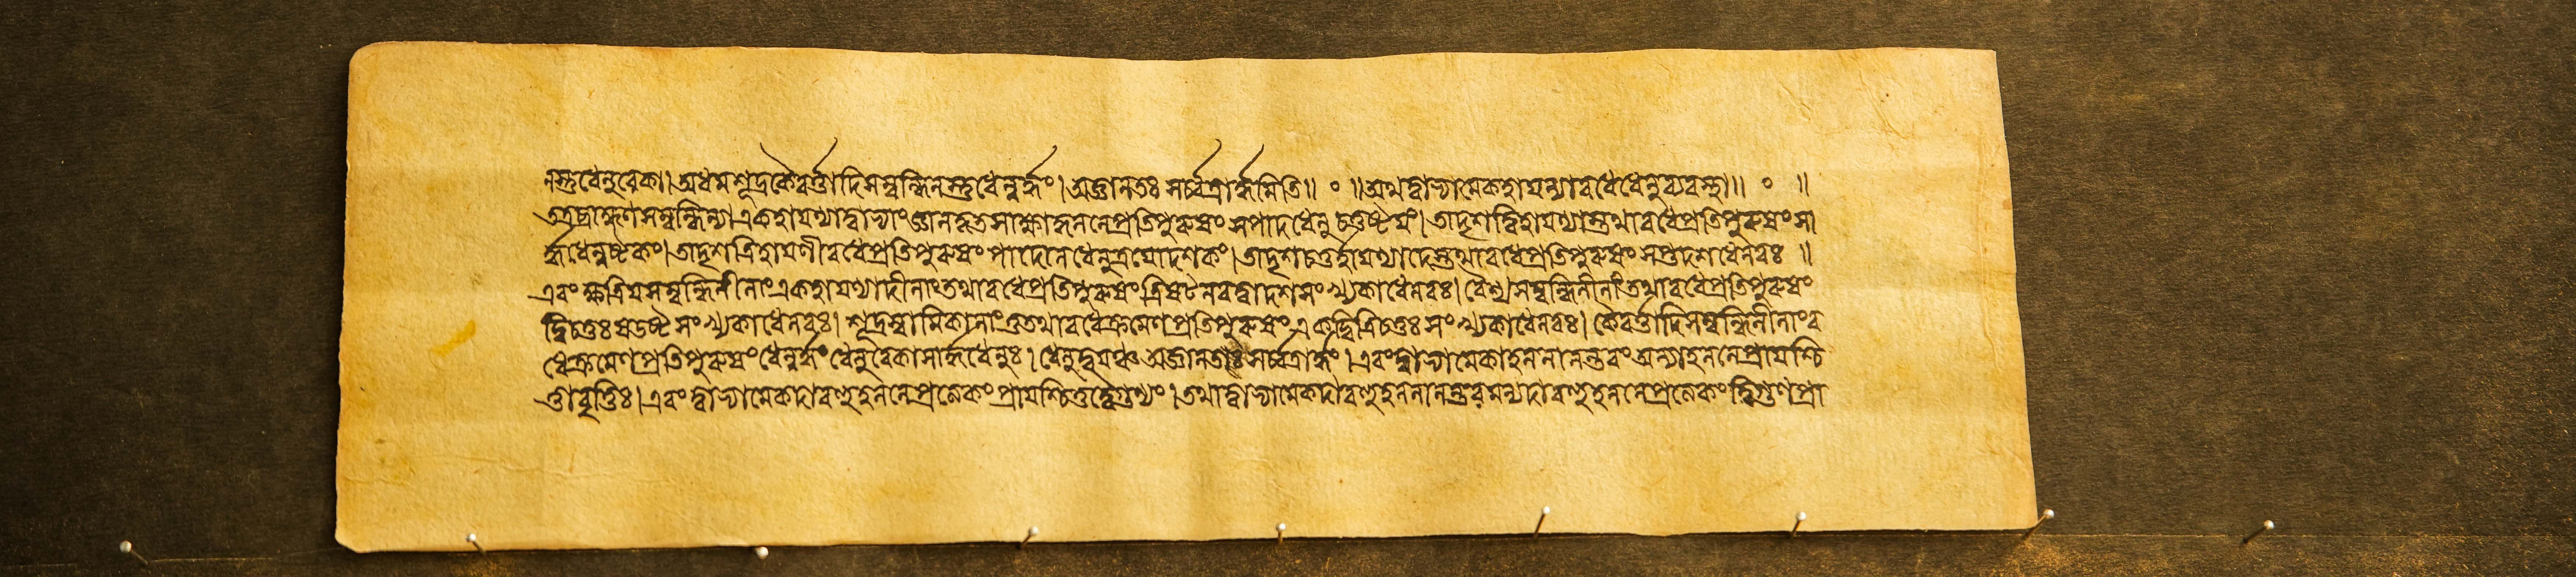 নস্তুধেনুরেকা। অধমশূদ্রকৈবর্ত্তাদিসম্বন্ধিনস্তুধেন্বর্দ্ধং। অজ্ঞানতঃ সর্ব্বত্রার্দ্ধমিতি॥ ০ ॥অথদ্বাভ্যামেকহায়ন্যাবধেধেনুব্যবস্থা॥ ০ ॥
তত্রব্রাহ্মণসম্বন্ধিন্যাএকহায়ন্যাদ্বাভ্যাংজ্ঞানকৃতসাক্ষাদ্ধননেপ্রতিপুরুষং সপাদধেনুচতুষ্টয়ং। তাদৃশদ্বিহায়ন্যাস্তথাবধেপ্রতিপুরুষং সা
র্দ্ধধেন্বষ্টকং। তাদৃশত্রিহায়ণীবধেপ্রতিপুরুষং পাদোনধেনুত্রয়োদশকং। তাদৃশচতুর্হায়ন্যাদেস্তথাবধেপ্রতিপুরুষং সপ্তদশধেনবঃ ॥
এবং ক্ষত্রিয়সম্বন্ধিনীনাং একহায়ন্যাদীনাংতথাবধেপ্রতিপুরুষং ত্রিষট্নবদ্বাদশসংখ্যকাধেনবঃ। বৈশ্যসম্বন্ধিনীনাংতথাবধেপ্রতিপুরুষং
দ্বিচতুঃষডষ্টসংখ্যকাধেনবঃ। শূদ্রস্বামিকানাংতুতথাবধেক্রমেণপ্রতিপুরুষং একদ্বিত্রিচতুঃ সংখ্যকাধেনবঃ। কৈবর্ত্তাদিসম্বন্ধিনীনাংব
ধেক্রমেণপ্রতিপুরুষং ধেন্বর্দ্ধং ধেনুরেকাসার্দ্ধধেনুঃ। ধেনুদ্বয়ঞ্চ অজ্ঞানতঃ সর্ব্বত্রার্দ্ধং। এবংদ্বাভ্যামেকাহননানন্তরং অন্যাহননেপ্রায়শ্চি
ত্তাবৃত্তিঃ। এবং দ্বাভ্যামেকদাবহুহননেপ্রত্যেকংপ্রায়শ্চিত্তদ্বৈগুণ্যং। তথাদ্বাভ্যামেকদাবহুহননানন্তরমন্যদাবহুহননেপ্রত্যেকংদ্বিগুণপ্রা